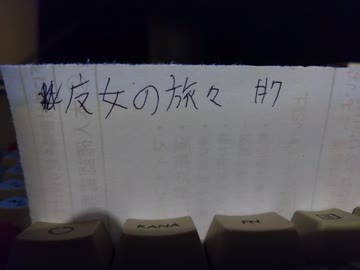 彼女の旅々 #7
KANA
FN